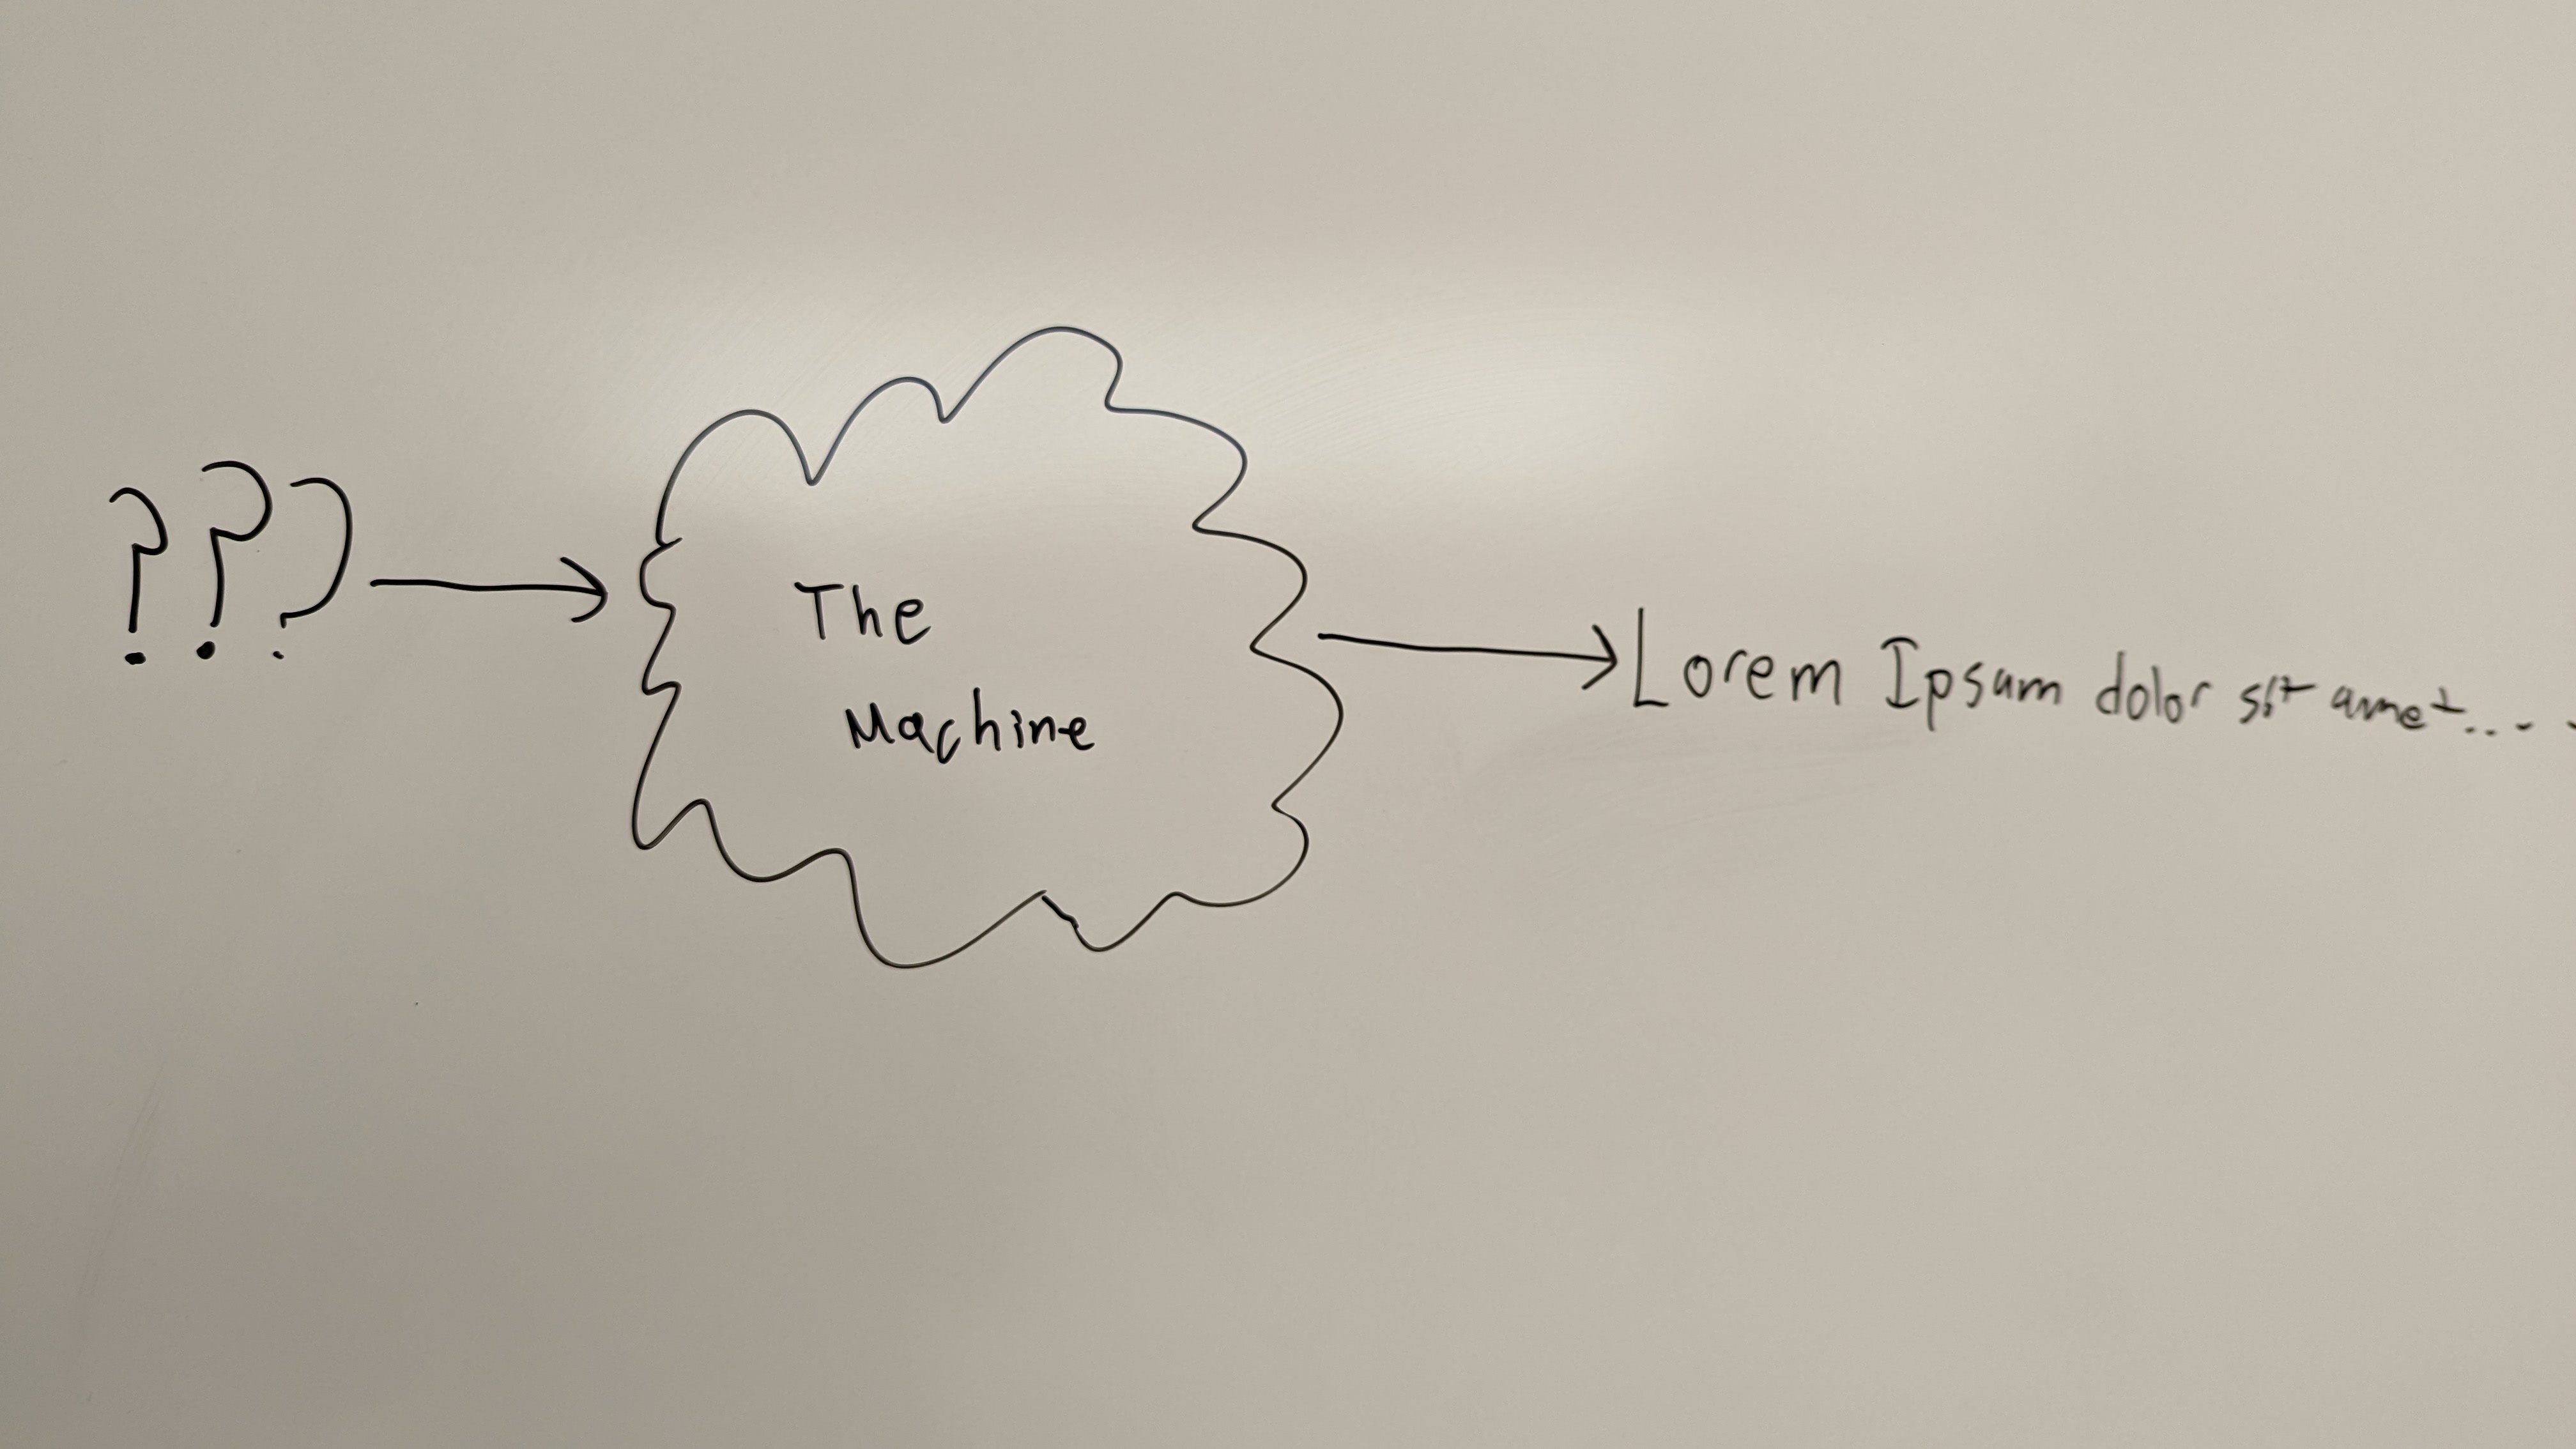 ???
The
Machine
Lorem Ipsum dolor sit amet....